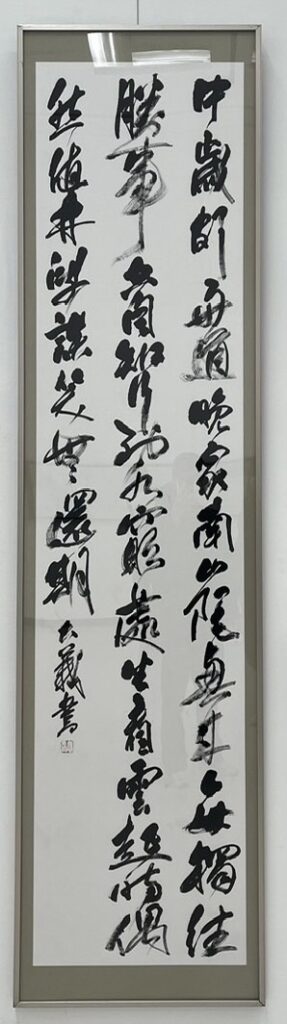 中歲頗好道晚家南山陲興来每獨往
勝事空自知行到水窮處坐看雲起時偶
然值林叟談笑無還期 大義書